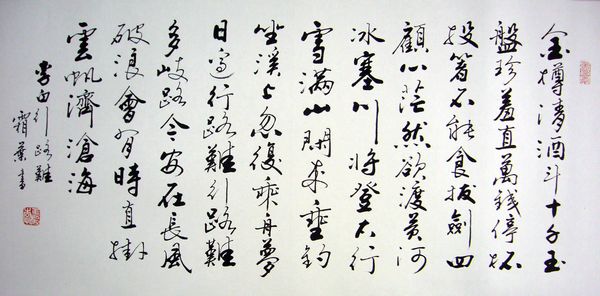 金樽清酒斗十千玉
盤珍羞直萬錢停杯
投箸不能食拔劍四
顧心茫然欲渡黃河
冰塞川將登太行
雪滿山閑來垂釣
坐溪上忽復乘舟夢
日邊行路難行路難
多岐路今安在長風
破浪會有時直掛
雲帆濟滄海
李白行路難
霜葉書